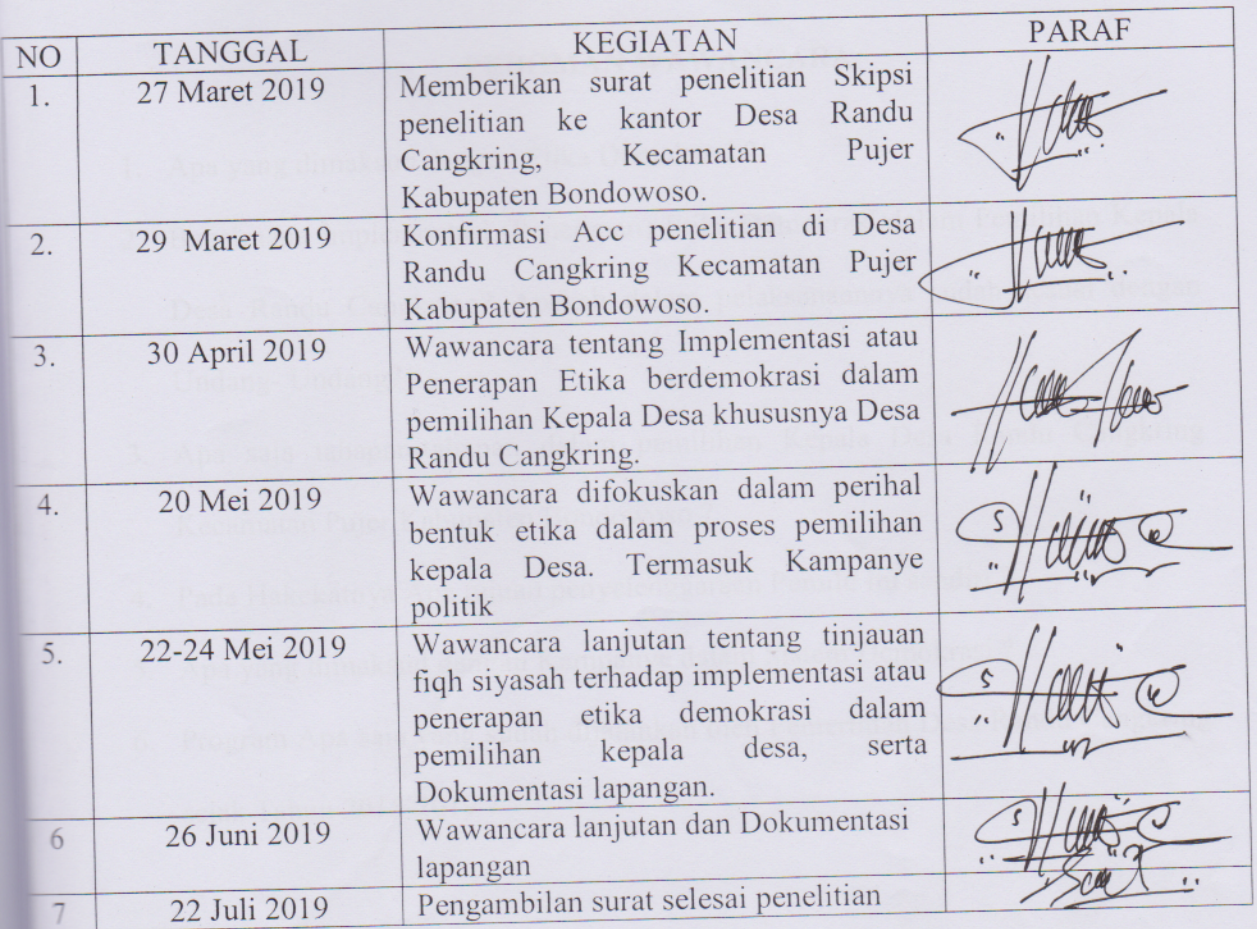 NO TANGGAL KEGIATAN PARAF
1. 27 Maret 2019 Memberikan surat penelitian Skipsi
penelitian ke kantor Desa Randu
Cangkring, Kecamatan Pujer
Kabupaten Bondowoso.
2. 29 Maret 2019 Konfirmasi Acc penelitian di Desa
Randu Cangkring Kecamatan Pujer
Kabupaten Bondowoso.
3. 30 April 2019 Wawancara tentang Implementasi atau
Penerapan Etika berdemokrasi dalam
pemilihan Kepala Desa khususnya Desa
Randu Cangkring.
4. 20 Mei 2019 Wawancara difokuskan dalam perihal
bentuk etika dalam proses pemilihan
kepala Desa. Termasuk Kampanye
politik
5. 22-24 Mei 2019 Wawancara lanjutan tentang tinjauan
fiqh siyasah terhadap implementasi atau
penerapan etika demokrasi dalam
pemilihan kepala desa, serta
Dokumentasi lapangan.
6 26 Juni 2019 Wawancara lanjutan dan Dokumentasi
lapangan
7 22 Juli 2019 Pengambilan surat selesai penelitian